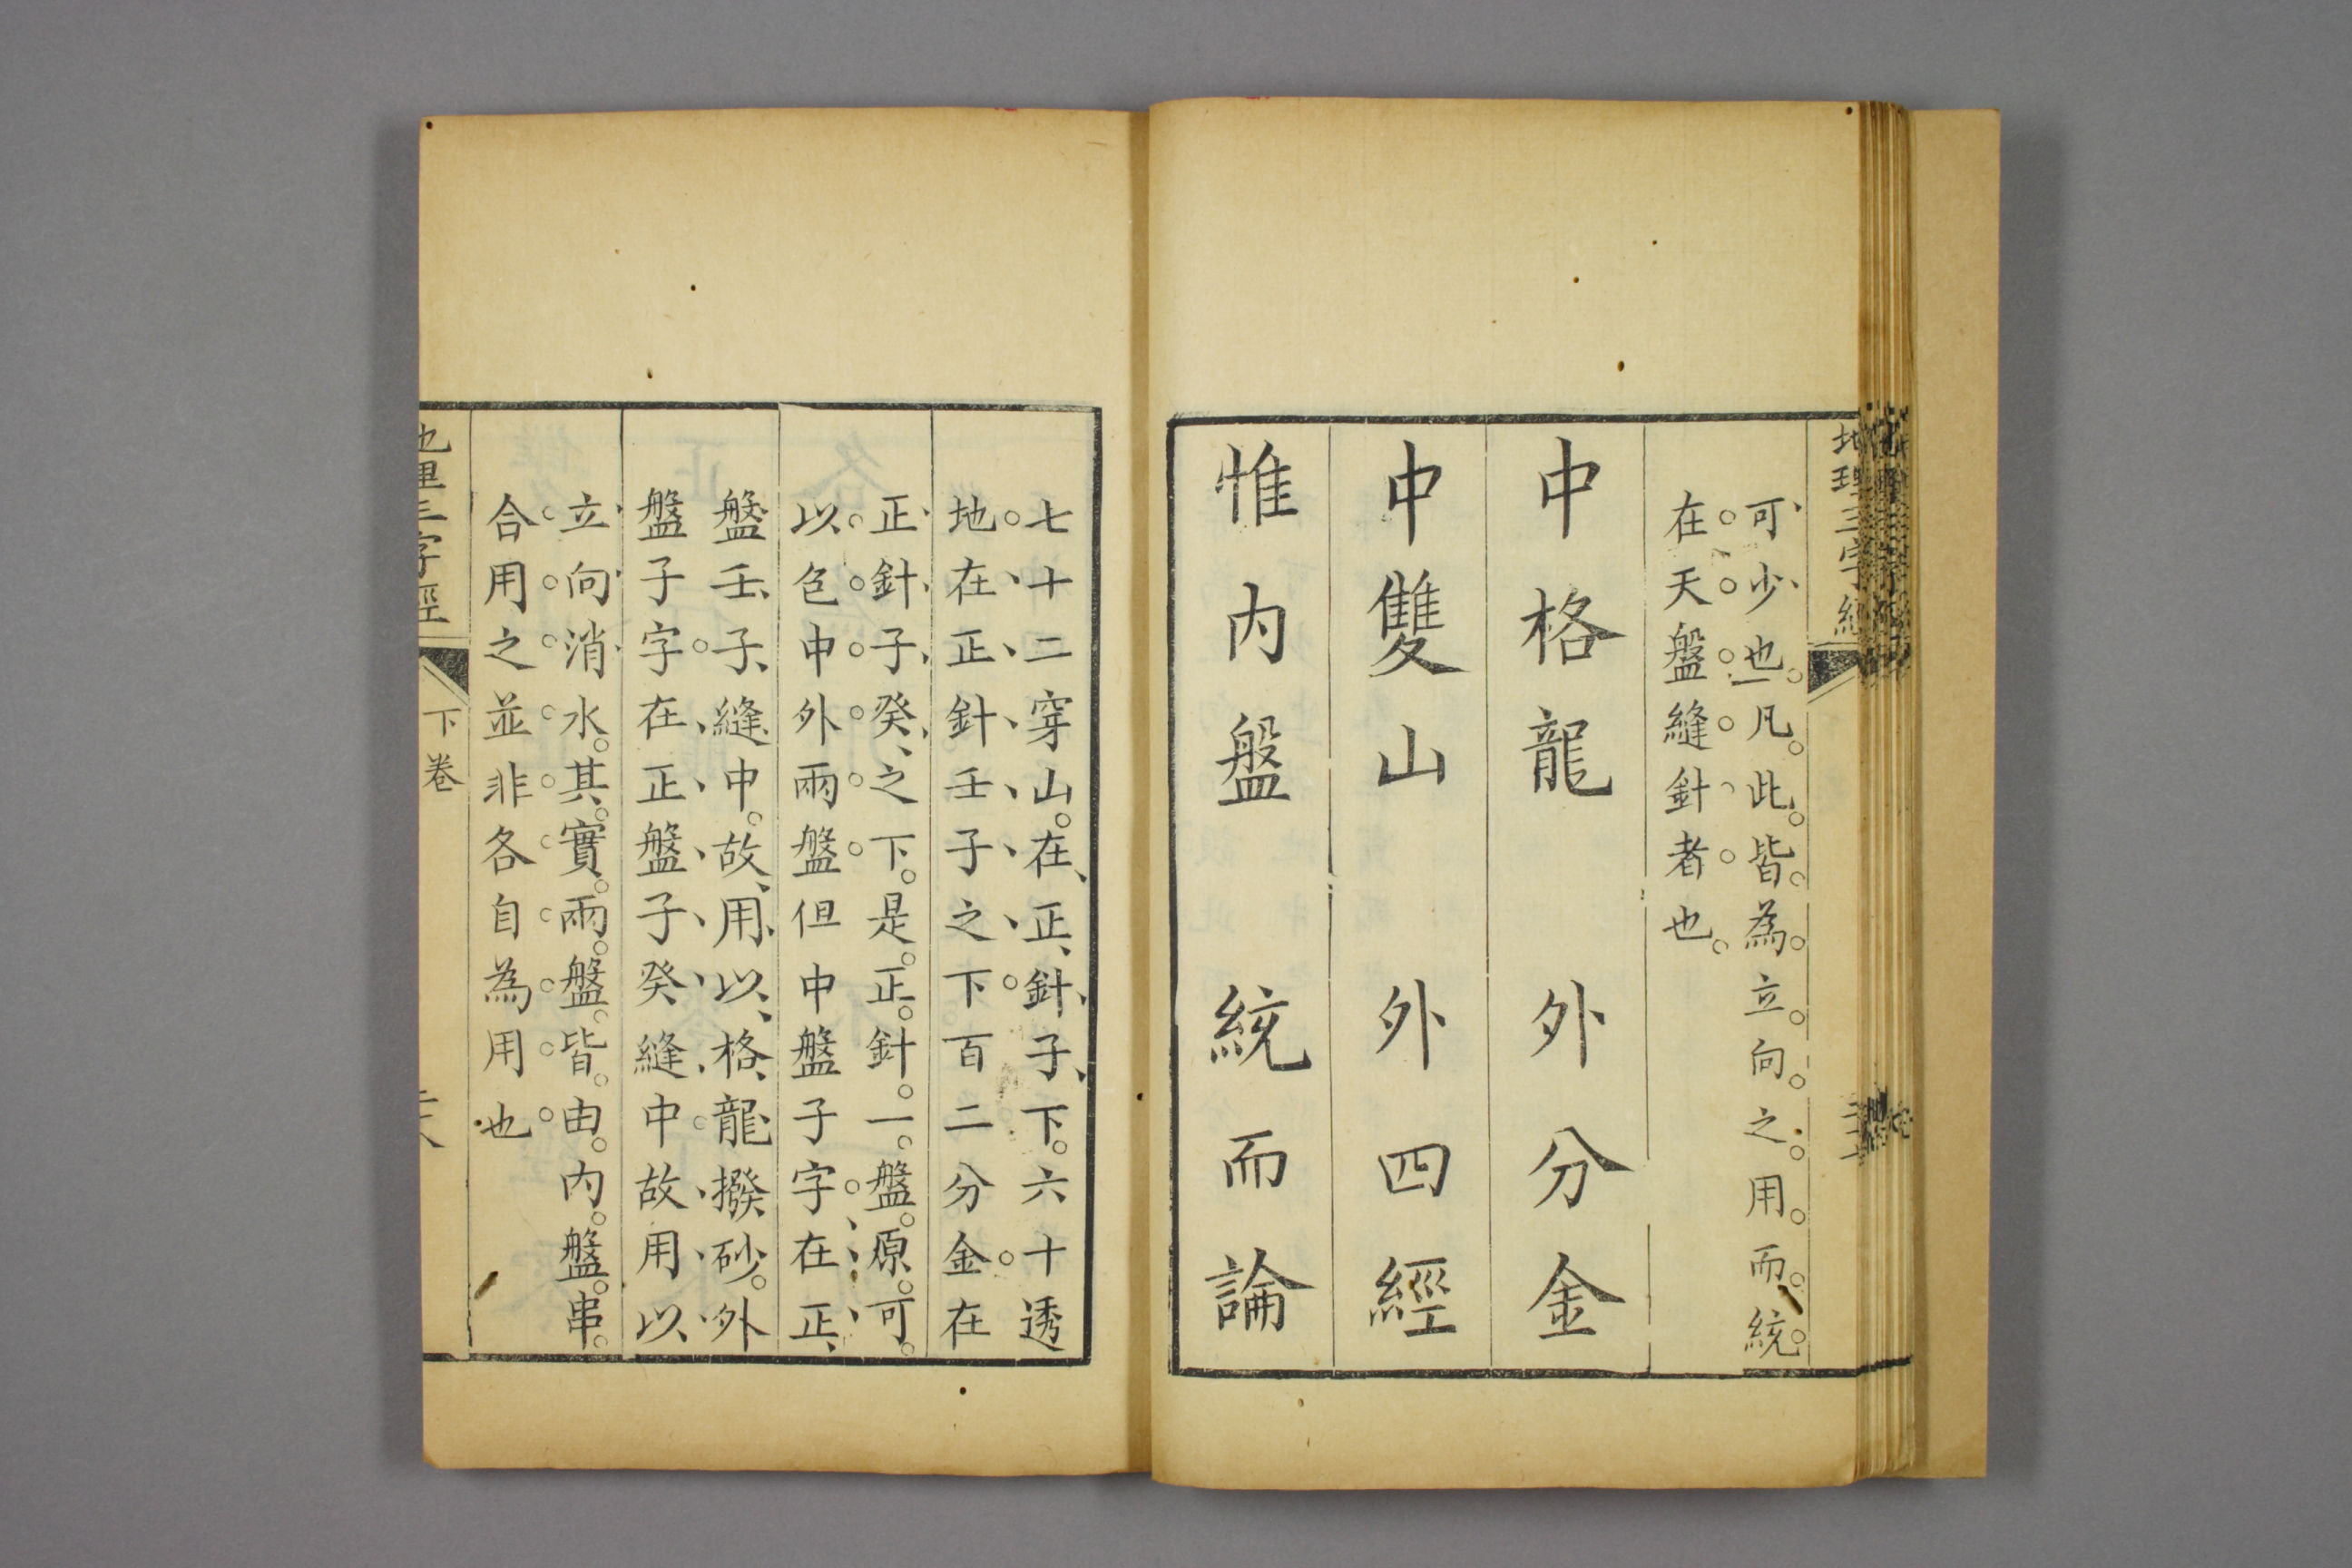 地理三字經
可少也凡此皆為立向之用而統
在天盤縫針者也
中格龍 外分金
中雙山 外四經
惟內盤 統而論
七十二穿山在正針子下六十透
地在正針壬子之下百二分金在
正針子癸之下是正針一盤原可
以包中外兩盤但中盤子字在正
盤壬子縫中故用以格龍撥砂外
盤子字在正盤子癸縫中故用以
立向消水其實兩盤皆由內盤串
合用之並非各自為用也
地理三字經 下卷